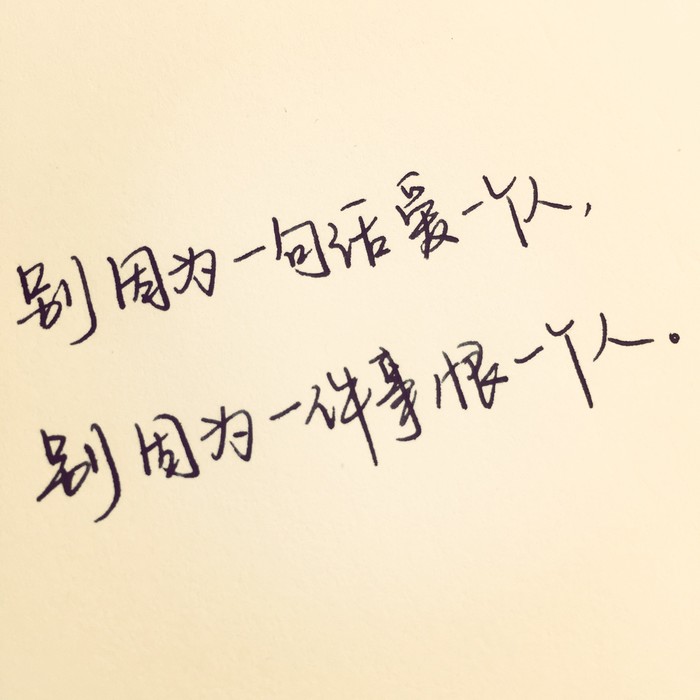 别因为一句话爱一个人,
别因为一件事恨一个人。